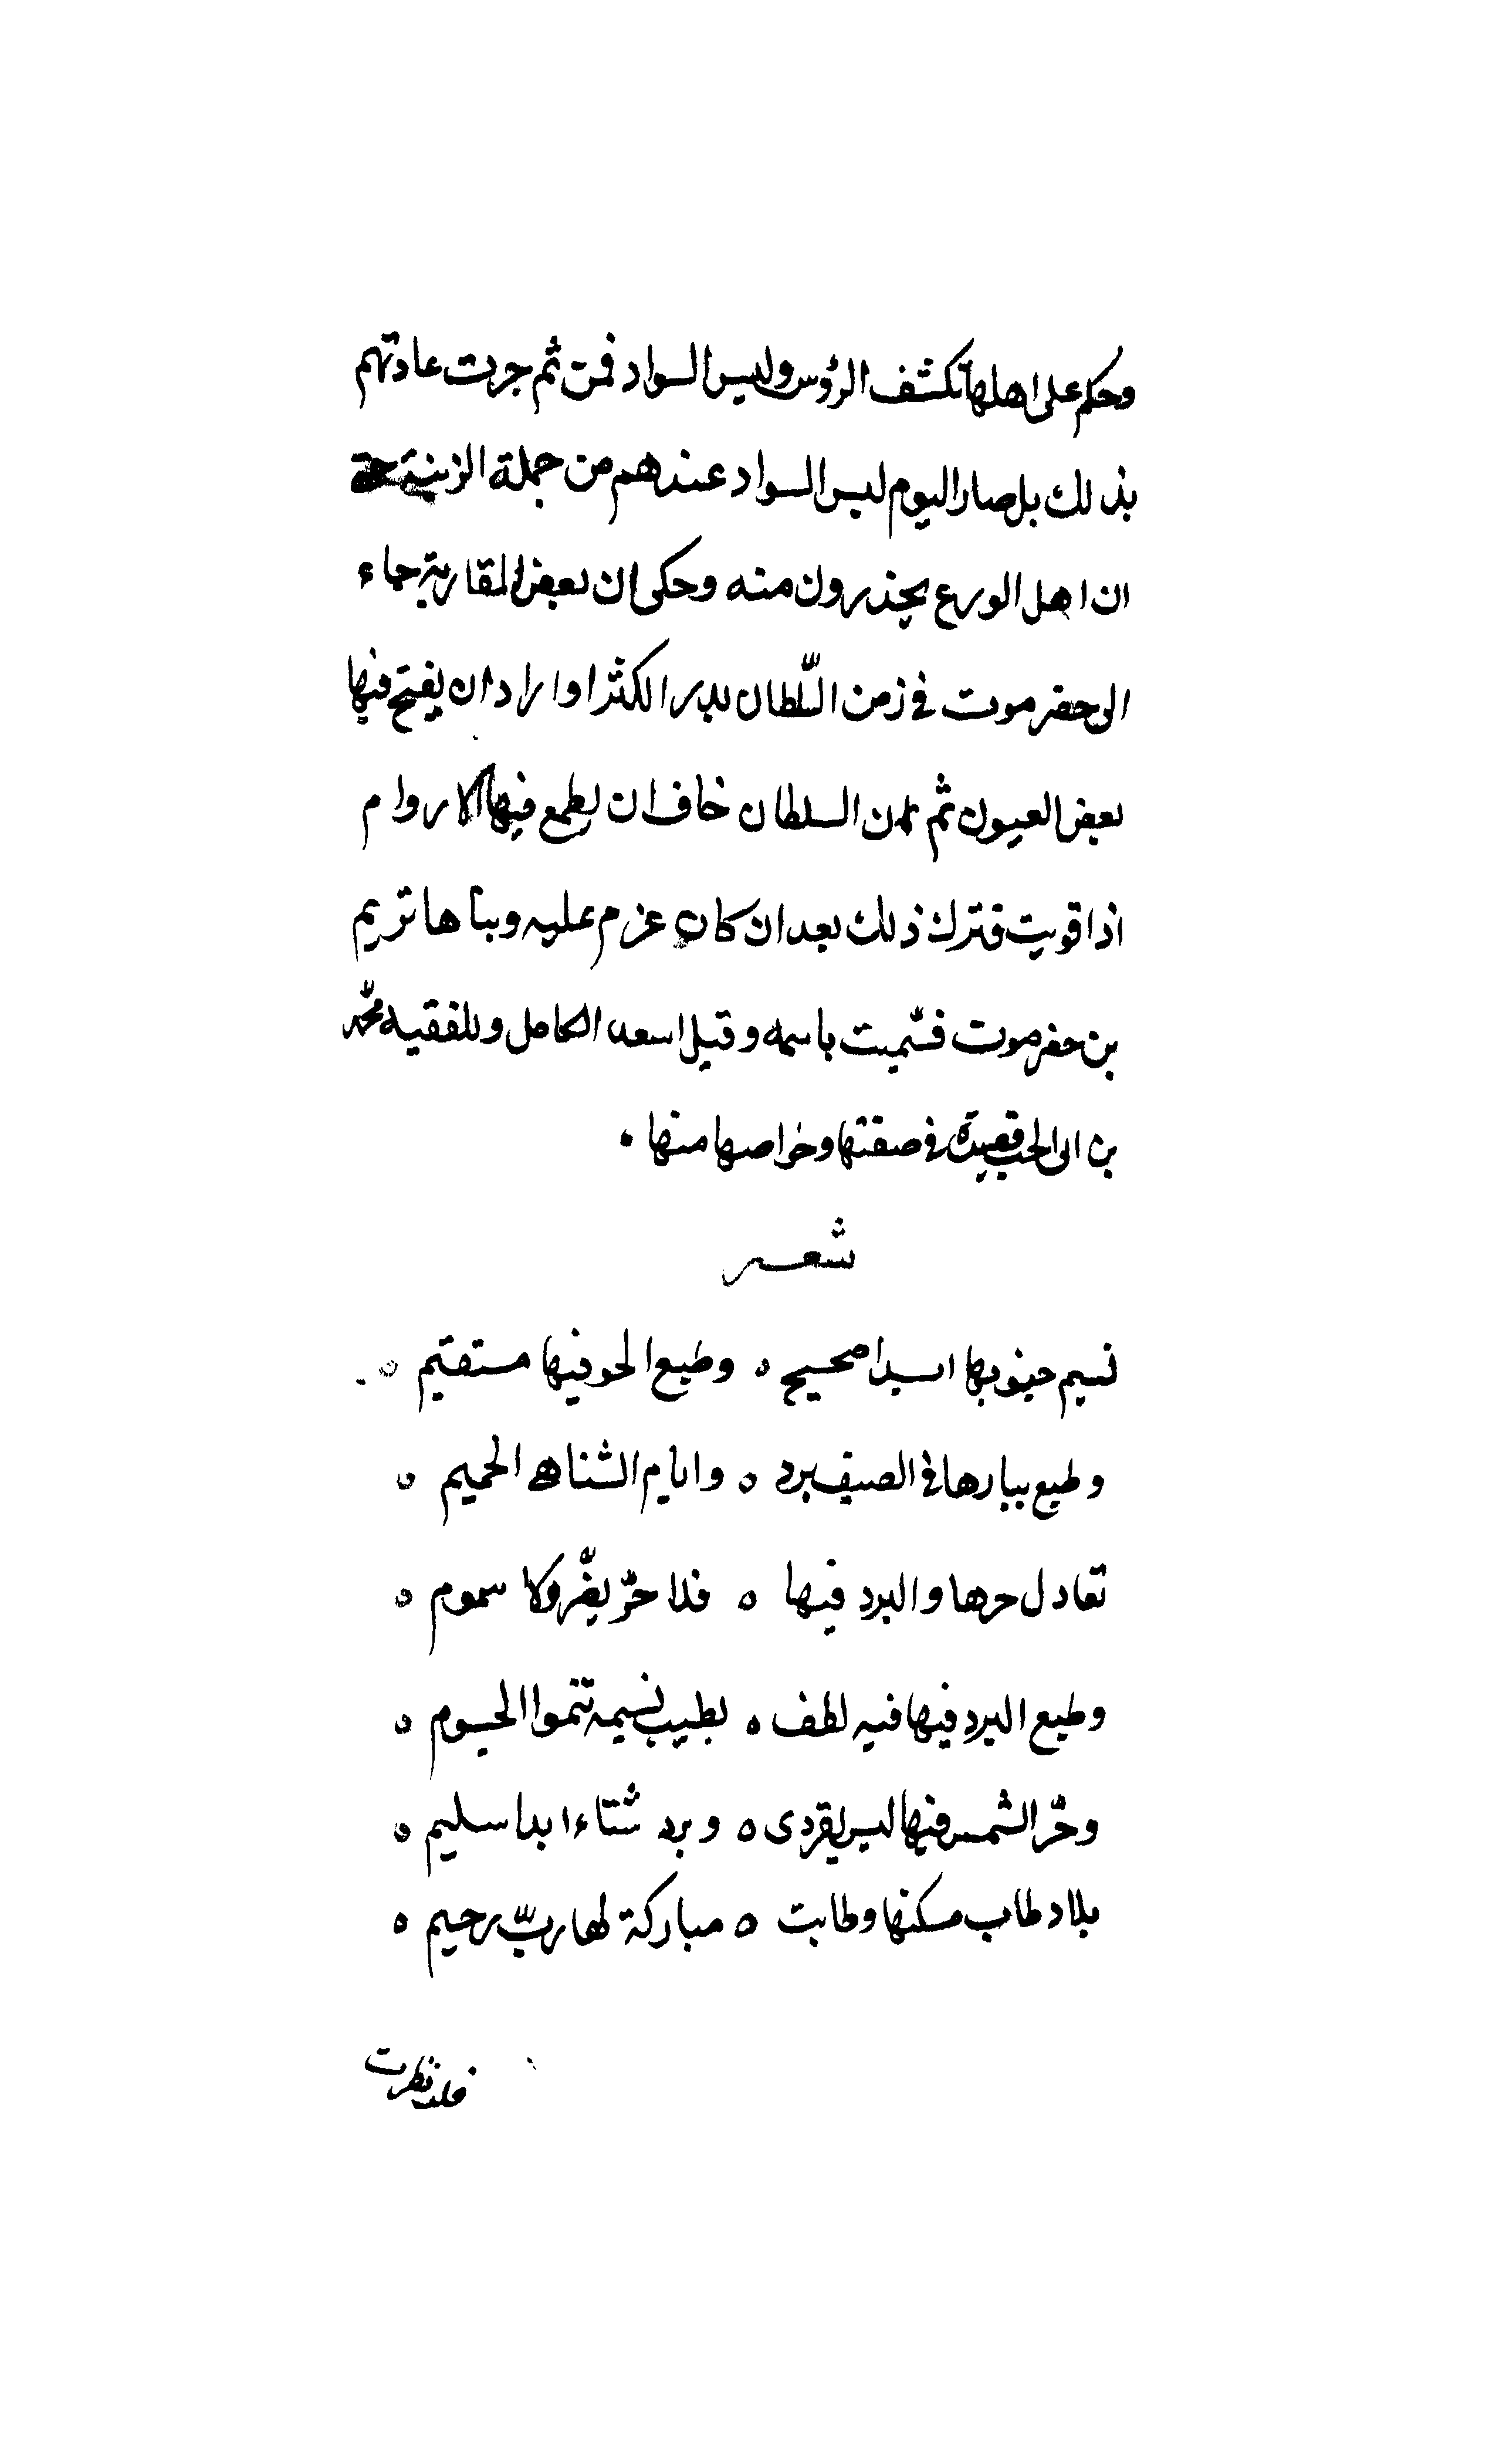 وحكم على اهلها تكشف الرؤس ولبس السواد فمن ثم جرت عادتهم
بذلك بل صار اليوم لبس السواد عندهم من جملة الزينة حتى
ان اهل الورع يحذرون منه وحكى ان بعض المغاربة جاء
الى حضرموت في زمن السّلطان بدر الكثيرا وا راد ان يفتح فيها
بعض العيون ثم ان السلطان خاف ان يطمع فيها الاروام
اذا قويت فترك ذلك بعد ان كان عزم عليه وبناها تريم
بن حضرموت فسّميت باسمه وقيل اسعد الكامل وللفقيه محمّد
بن ابي الحب قصيدة في صفتها وخواصها منها ٠
شعر
نسيم جنوبها ابدا صحيح ٥ وطبع الجو فيها مستقيم ٥
وطبع ببارها في الصيف برد ٥ وايام الشتاهي الحميم ٥
تعادل حرها والبرد فيها ٥ فلا حرّ يضّر ولا سموم ٥
وطبع البرد فيها فيه لطف ٥ بطيب نسيمه تنموا الجسوم ٥
وحرّ الشمس فيها ليس يؤذي ٥ وبرد شتاءا بدا سليم ٥
بلاد طاب مسكنها وطابت ٥ مباركة لها ربّ رحيم ٥
فلذ نظرت